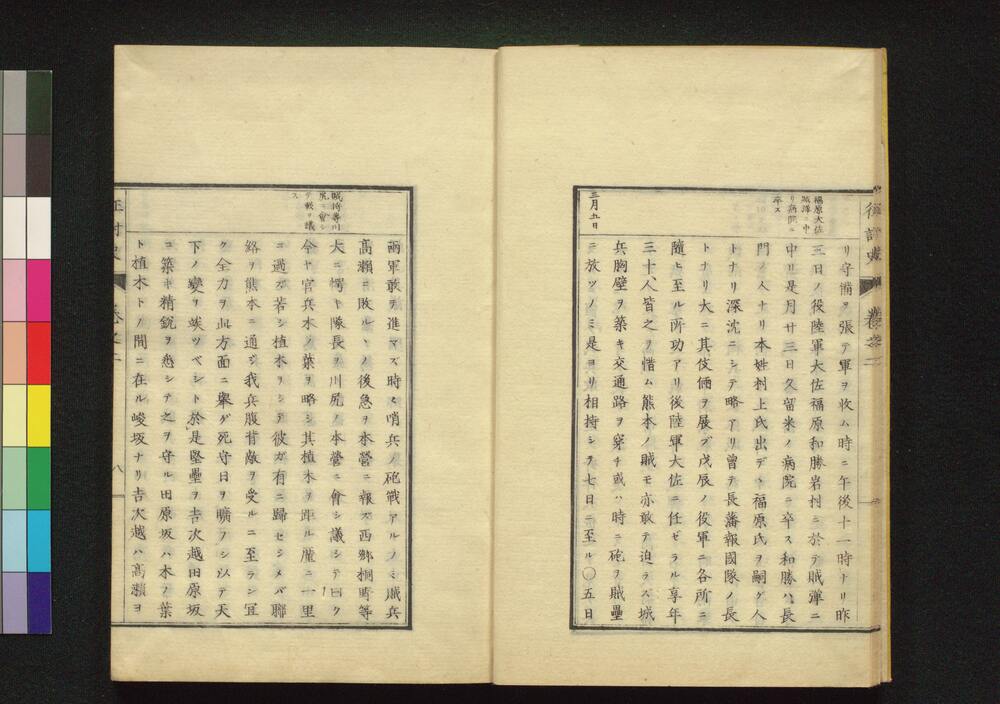 征討史 卷之二
福原大佐
賊弾ニ中
リ病院ニ
卒ス
リ守備ヲ張テ軍ヲ收ム時ニ午後十一時ナリ昨
三日ノ役陸軍大佐福原和勝岩村ニ於テ賊彈ニ
中リ是月廿三日久留米ノ病院ニ卒ス和勝ハ長
門ノ人ナリ本姓村上氏出デヽ福原氏ヲ嗣グ人
トナリ深沈ニシテ略アリ曾テ長藩報國隊ノ長
トナリ大ニ其伎倆ヲ展ブ戊辰ノ役軍ニ各所ニ
隨ヒ至ル所功アリ後陸軍大佐ニ任ゼラル享年
三十、人皆之ヲ惜ム熊本ノ賊モ亦敢テ迫ラズ城
兵胸壁ヲ築キ交通路ヲ穿チ或ハ時ニ砲ヲ賊壘
三月五日
ニ放ツノミ是ヨリ相持シテ七日ニ至ル〇五日
賊將等川
尻ニ會シ
テ軍ヲ議
ス
兩軍敢テ進マズ時々哨兵ノ砲戰アルノミ賊兵
高瀬ニ敗ルヽノ後急ヲ本營ニ報ズ西郷桐野等
大ニ愕キ隊長ヲ川尻ノ本營ニ會シ議シテ曰ク
今ヤ官兵木ノ葉ヲ略シ其植木ヲ距ル僅ニ一里
ニ過ズ若シ植木ヲシテ彼ガ有ニ歸セシメバ聯
絡ヲ熊本ニ通ジ我兵腹背敵ヲ受ルニ至ラン宜
ク全力ヲ此方面ニ擧グ死守日ヲ曠フシ以テ天
下ノ變ヲ竢ツベシト於是堅壘ヲ吉次越田原坂
ニ築キ精鋭ヲ悉シテ之ヲ守ル田原坂ハ木ノ葉
ト植木トノ間ニ在ル峻坂ナリ吉次越ハ高瀬ヨ
征討史 卷之二 八